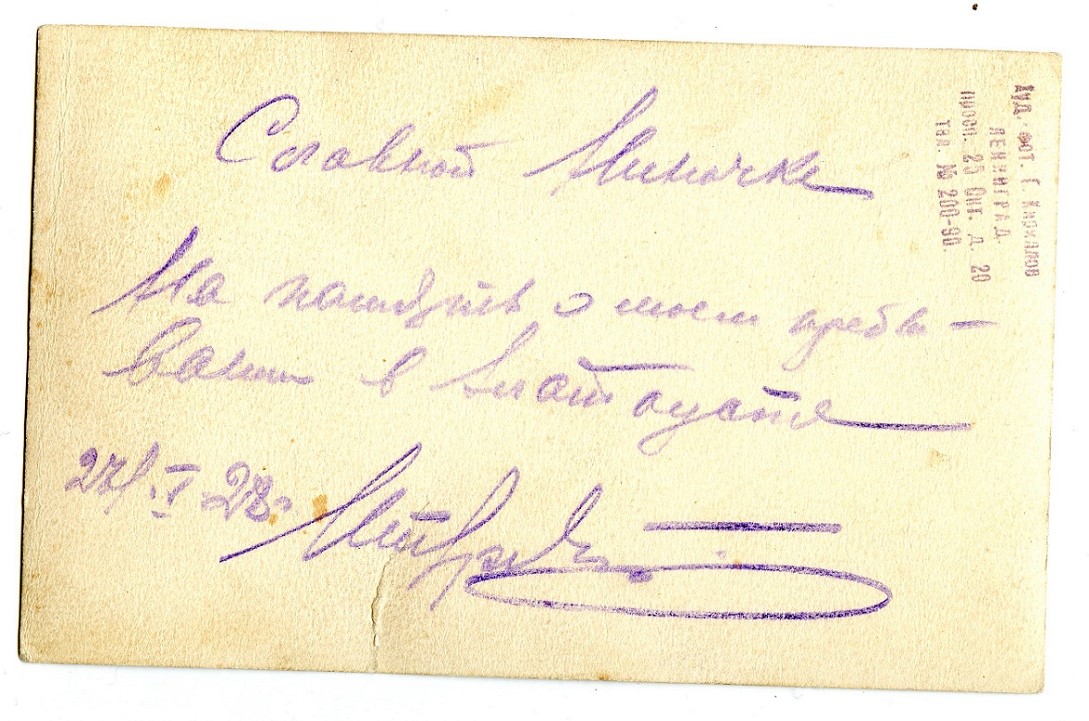 Славной Миночке
На память о моем пребы-
вании в Златоусте
27/V 28г.
Худ. фот Г. Кирилов
ЛЕНИНГРАД.
просп. 25 Окт. д. 20
тел. № 200-90.